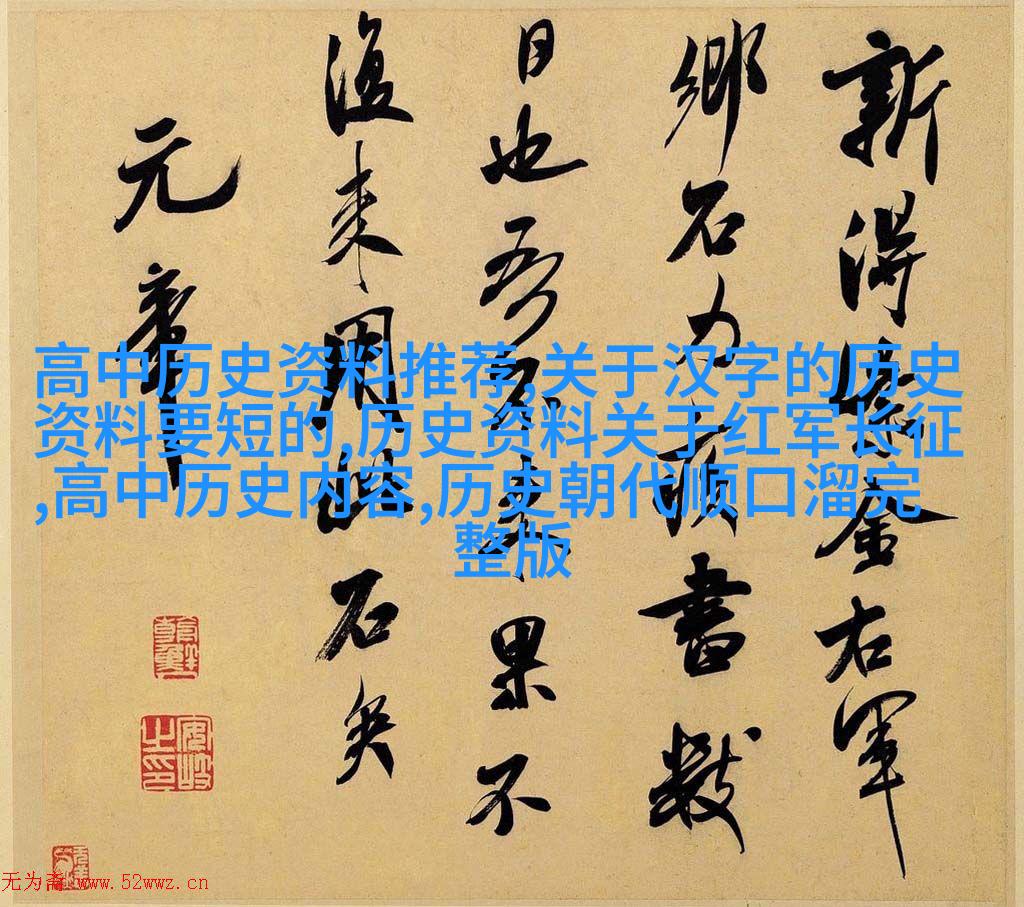 新得紫金右軍
鄉石力疾書數
日也吾不來果不
復來用此石矣
元章
高中历史资料推荐,关于汉字的历史
资料要短的,历史资料关于红军长征
,高中历史内容,历史朝代顺口溜完
整版
安岐之印
无为斋 www.52wwz.cn